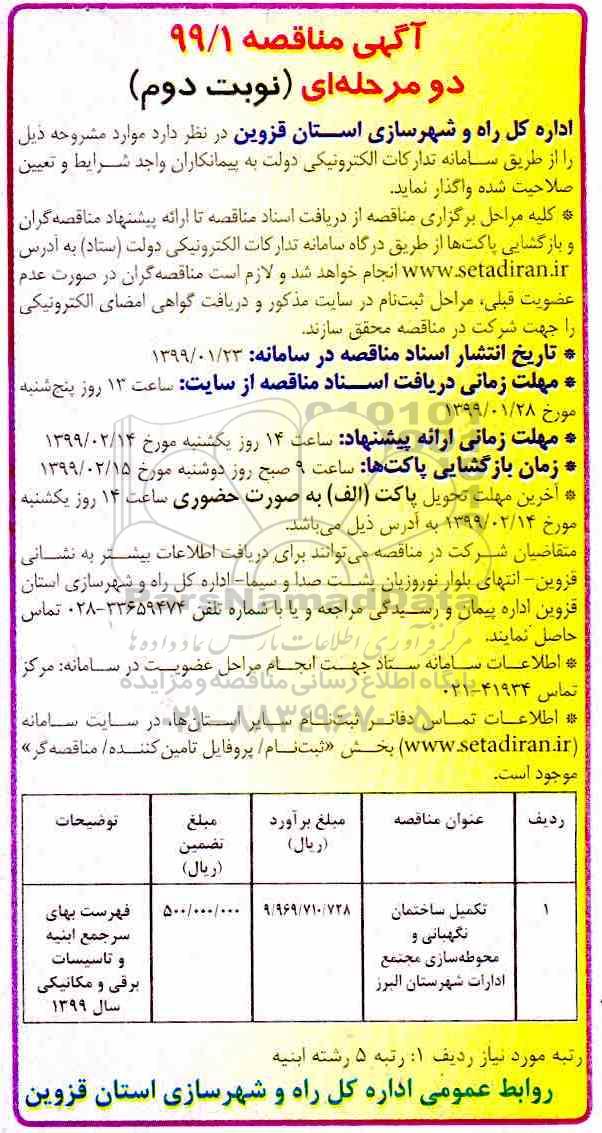 آگهی مناقصه ۹۹/۱
دو مرحله‌ای (نوبت دوم)
اداره کل راه و شهرسازی استان قزوین در نظر دارد موارد مشروحه ذیل
را از طریق سامانه تدارکات الکترونیکی دولت به پیمانکاران واجد شرایط و تعیین
صلاحیت شده واگذار نماید.
* کلیه مراحل برگزاری مناقصه از دریافت اسناد مناقصه تا ارائه پیشنهاد مناقصه‌گران
و بازگشایی پاکت‌ها از طریق درگاه سامانه تدارکات الکترونیکی دولت (ستاد) به آدرس
www.setadiran.ir انجام خواهد شد و لازم است مناقصه‌گران در صورت عدم
عضویت قبلی، مراحل ثبت‌نام در سایت مذکور و دریافت گواهی امضای الکترونیکی
را جهت شرکت در مناقصه محقق سازند.
* تاریخ انتشار اسناد مناقصه در سامانه: ۱۳۹۹/۰۱/۲۳
* مهلت زمانی دریافت اسناد مناقصه از سایت: ساعت ۱۳ روز پنج‌شنبه
مورخ ۱۳۹۹/۰۱/۲۸
* مهلت زمانی ارائه پیشنهاد: ساعت ۱۴ روز یکشنبه مورخ ۱۳۹۹/۰۲/۱۴
* زمان بازگشایی پاکت‌ها: ساعت ۹ صبح روز دوشنبه مورخ ۱۳۹۹/۰۲/۱۵
* آخرین مهلت تحویل پاکت (الف) به صورت حضوری ساعت ۱۴ روز یکشنبه
مورخ ۱۳۹۹/۰۲/۱۴ به آدرس ذیل می‌باشد.
متقاضیان شرکت در مناقصه می‌توانند برای دریافت اطلاعات بیشتر به نشانی
قزوین- انتهای بلوار نوروزیان پشت صدا و سیما- اداره کل راه و شهرسازی استان
قزوین اداره پیمان و رسیدگی مراجعه و یا با شماره تلفن ۳۳۶۵۹۴۷۴-۰۲۸ تماس
حاصل نمایند.
* اطلاعات سامانه ستاد جهت انجام مراحل عضویت در سامانه: مرکز
تماس ۴۱۹۳۴-۰۲۱
* اطلاعات تماس دفاتر ثبت‌نام سایر استان‌ها، در سایت سامانه
(www.setadiran.ir) بخش «ثبت‌نام/ پروفایل تامین‌کننده/ مناقصه‌گر»
موجود است.
ParsNamadData
مرکز فرآوری اطلاعات پارس نماد داده‌ها
پایگاه اطلاع رسانی مناقصه و مزایده
۰۲۱-۸۸۳۴۹۶۷۰-۵
ردیف عنوان مناقصه مبلغ برآورد (ریال) مبلغ تضمین (ریال) توضیحات
۱ تکمیل ساختمان ۹/۹۶۹/۷۱۰/۷۲۸ ۵۰۰/۰۰۰/۰۰۰ فهرست بهای
نگهبانی و سرجمع ابنیه
محوطه‌سازی مجتمع و تاسیسات
ادارات شهرستان البرز برقی و مکانیکی
سال ۱۳۹۹
رتبه مورد نیاز ردیف ۱: رتبه ۵ رشته ابنیه
روابط عمومی اداره کل راه و شهرسازی استان قزوین